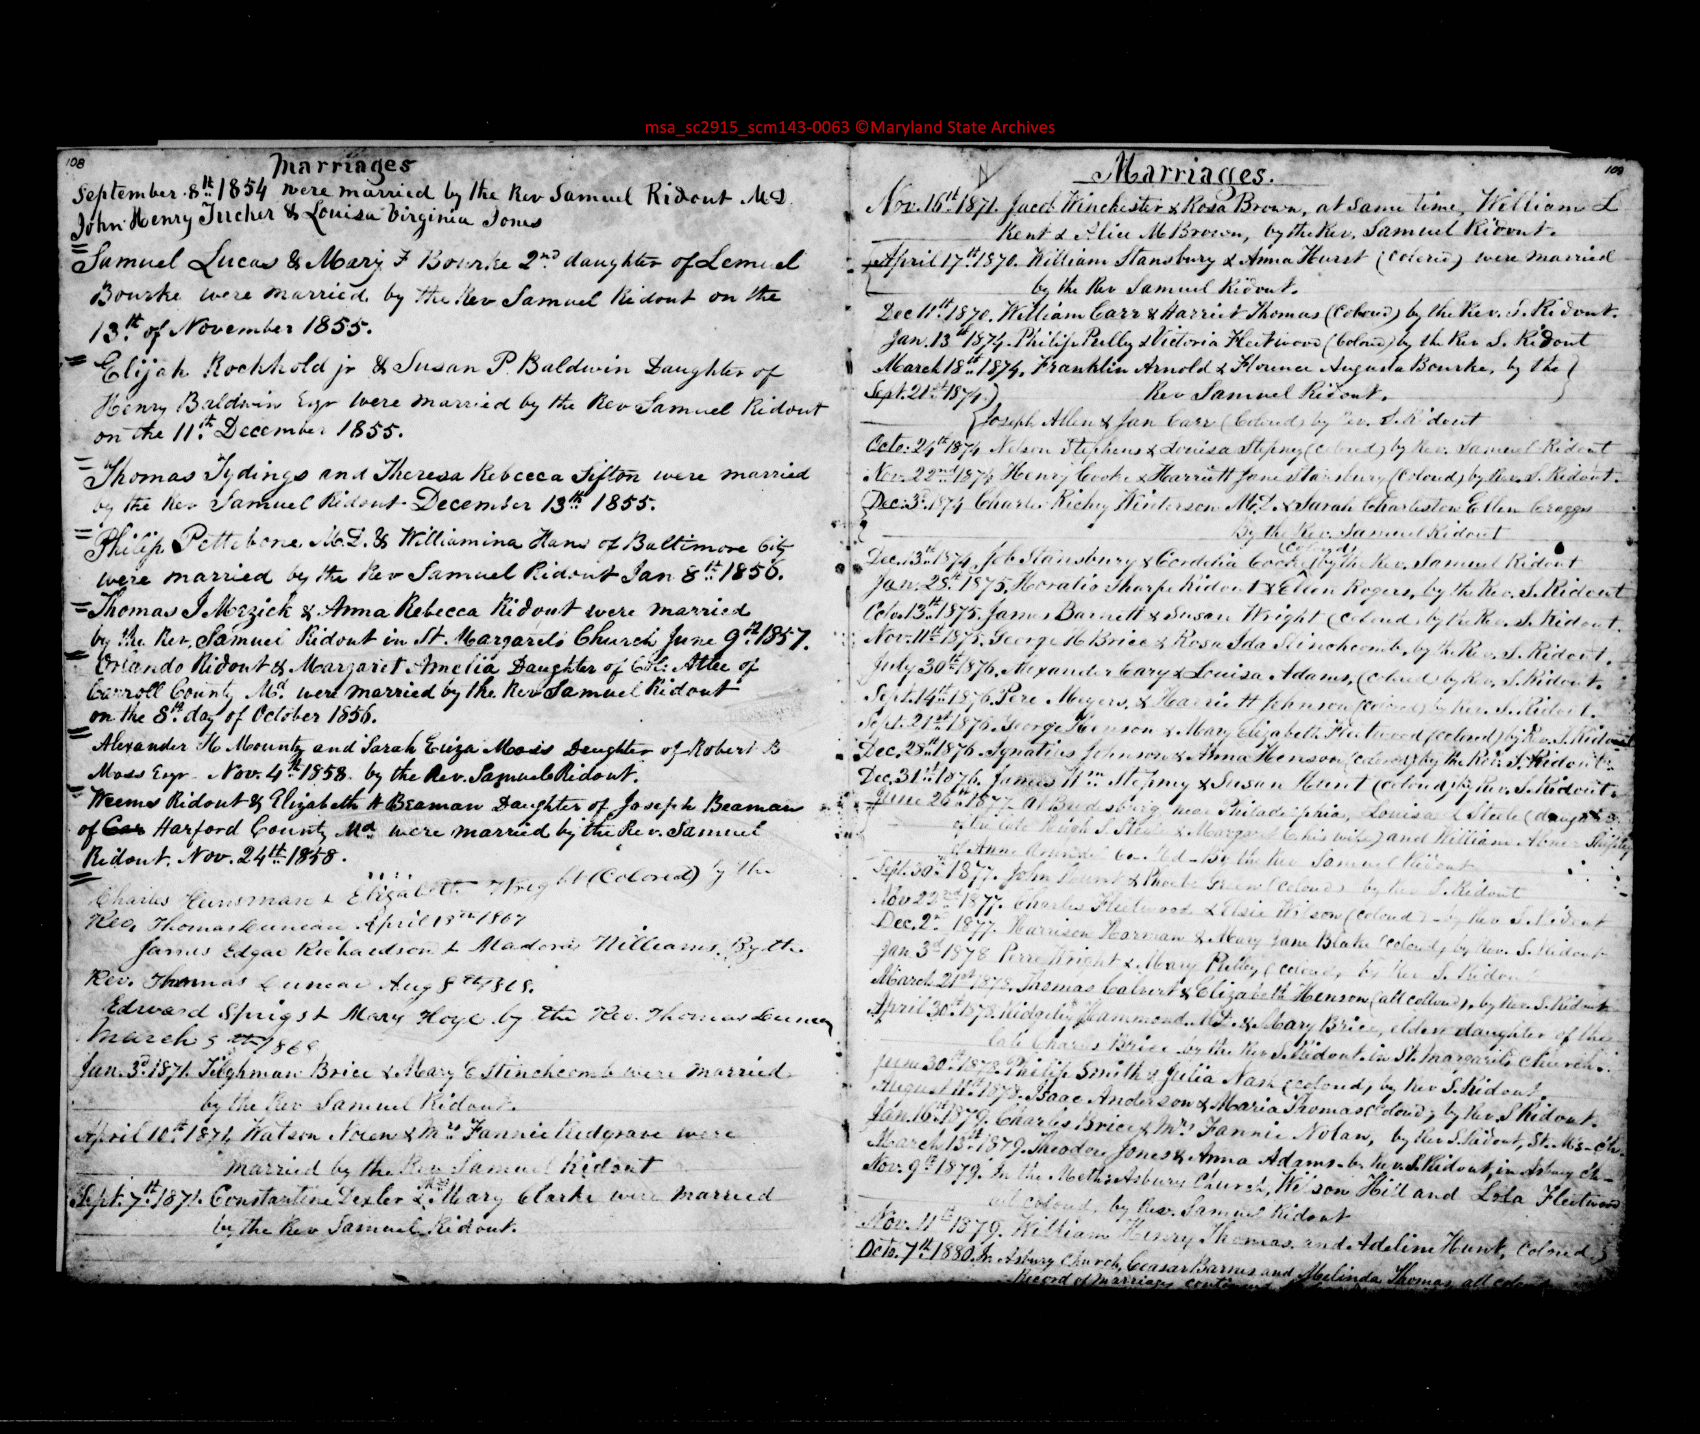 msa_sc2915_scm143-0063 ©Maryland State Archives
108
Marriages
September 8th 1854 were married by the Rev Samuel Ridout M.D.
John Henry Tucker & Louisa Virginia Jones
Samuel Lucas & Mary F Bourke 2nd daughter of Lemuel
Bourke were married by the Rev Samuel Ridout on the
13th of November 1855.
Elijah Rockhold jr & Susan P. Baldwin Daughter of
Henry Baldwin Esqr were married by the Rev Samuel Ridout
on the 11th December 1855.
Thomas Tydings and Theresa Rebecca Sifton were married
by the Rev Samuel Ridout December 13th 1855.
Philip Pettebone M.D. & Williamina Hans of Baltimore City
were married by the Rev Samuel Ridout Jan 8th 1856.
Thomas J Mezick & Anna Rebecca Ridout were married
by the Rev. Samuel Ridout in St. Margarets Church June 9th 1857.
Orlando Ridout & Margaret Amelia Daughter of Col: Atlee of
Carroll County Md were married by the Rev Samuel Ridout
on the 8th day of October 1856.
Alexander H Mountz and Sarah Eliza Moss Daughter of Robert B
Moss Esqr Nov. 4th 1858 by the Rev. Samuel Ridout.
Weems Ridout & Elizabeth H Beaman Daughter of Joseph Beaman
of Car Harford County Md were married by the Rev. Samuel
Ridout. Nov. 24th 1858.
Charles Hunsman & Elizabeth Wright (Colored) by the
Rev. Thomas Duncan April 18th 1867
James Edgar Richardson & Madora Williams. By the
Rev. Thomas Duncan Aug 8th 1868.
Edward Sprigs & Mary Hoye by the Rev. Thomas Duncan
March 5th 1869
Jan. 3d 1871. Tilghman Brice & Mary E Stinchcomb were married
by the Rev Samuel Ridout.
April 10th 1871 Watson Nolen & Mrs Fannie Redgrave were
married by the Rev Samuel Ridout
Sept. 7th 1871. Constantine Dexler & Mrs Mary Clarke were married
by the Rev Samuel Ridout.
109
Marriages.
Nov. 16th 1871. Jacob Winchester & Rosa Brown, at same time, William L
Kent & Alice M Brown, by the Rev. Samuel Ridout.
April 17th 1870. William Stansbury & Anna Hurst (Colored) were married
by the Rev Samuel Ridout.
Dec 11th 1870. William Carr & Harriet Thomas (Colored) by the Rev. S. Ridout.
Jan. 13th 1874. Philip Pulley & Victoria Fleetwood (Colored) by the Rev S. Ridout
March 18th 1874. Franklin Arnold & Florence Augusta Bourke, by the
Sept. 21st 1874. Rev Samuel Ridout.
Joseph Allen & Jan Carr (Colored) by Rev. S. Ridout
Octo. 24th 1874 Nelson Stephens & Louisa Stepney (colored) by Rev. Samuel Ridout
Nov. 22nd 1874 Henry Cooke & Harriett Jane Stansbury (Colored) by Rev. S. Ridout.
Dec. 3d 1874 Charles Richey Winterson M.D. & Sarah Charleston Ellen Craggs
By the Rev. Samuel Ridout
Dec. 13th 1874 Job Stansbury & Cordelia Cooke (Colored) by the Rev. Samuel Ridout
Jan. 28th 1875. Horatio Sharpe Ridout & Ellen Rogers, by the Rev. S. Ridout
Octo. 13th 1875. James Barnett & Susan Wright (Colored) by the Rev. S. Ridout.
Nov. 11th 1875. George M Brice & Rosa Ida Stinchcomb, by the Rev. S. Ridout.
July 30th 1876. Alexander Cary & Louisa Adams, (colored) by Rev. S. Ridout.
Sept. 14th 1876. Pere Meyers, & Harriett Johnson (colored) by Rev. S. Ridout.
Sept. 21st 1876. George Henson & Mary Elizabeth Fleetwood (Colored) by Rev. S. Ridout
Dec. 28th 1876. Ignatius Johnson & Anna Henson (colored) by the Rev. S. Ridout.
Dec. 31st 1876. James Wm Stepney & Susan Hunt (colored) by Rev. S. Ridout.
June 26th 1877. At near Philadelphia, Louisa Steele (daughter
of the late Hugh S. Steele & Margaret his wife) and William Abner Shipley
of Anne Arundel Co. Md. By the Rev Samuel Ridout
Sept. 30th 1877. John & Phoebe Green (Colored) by Rev S. Ridout
Nov 22nd 1877. Charles Fleetwood & Elsie Wilson (colored) by Rev S. Ridout
Dec. 2d 1877. Harrison Harman & Mary Jane Blake (colored) by Rev. S. Ridout
Jan 3d 1878 Perre Wright & Mary Pulley (colored) by Rev S. Ridout
March 21st 1878. Thomas Calvert & Elizabeth Henson (all colored), by Rev. S. Ridout
April 30th 1878. Ridgeley Hammond M.D. & Mary Brice, eldest daughter of the
late Charles Brice by the Rev S. Ridout in St. Margarets Church.
June 30th 1878. Philip Smith & Julia Nash (colored) by Rev S. Ridout.
August 11th 1878. Isaac Anderson & Maria Thomas (Colored) by Rev. S Ridout.
Jan. 16th 1879. Charles Brice & Mrs Fannie Nolan, by Rev S. Ridout, St. M's Ch.
March 13th 1879. Theodore Jones & Anna Adams by Rev. S. Ridout, in Asbury Ch
Nov. 9th 1879. In the Meths. Asbury Church, Wilson Hill and Lola Fleetwood
all colored, by Rev. Samuel Ridout
Nov. 11th 1879. William Henry Thomas and Adeline Hunt, Colored
Octo. 7th 1880. In Asbury Church, Ceasar Barnes and Melinda Thomas all colored
Record of marriages continued